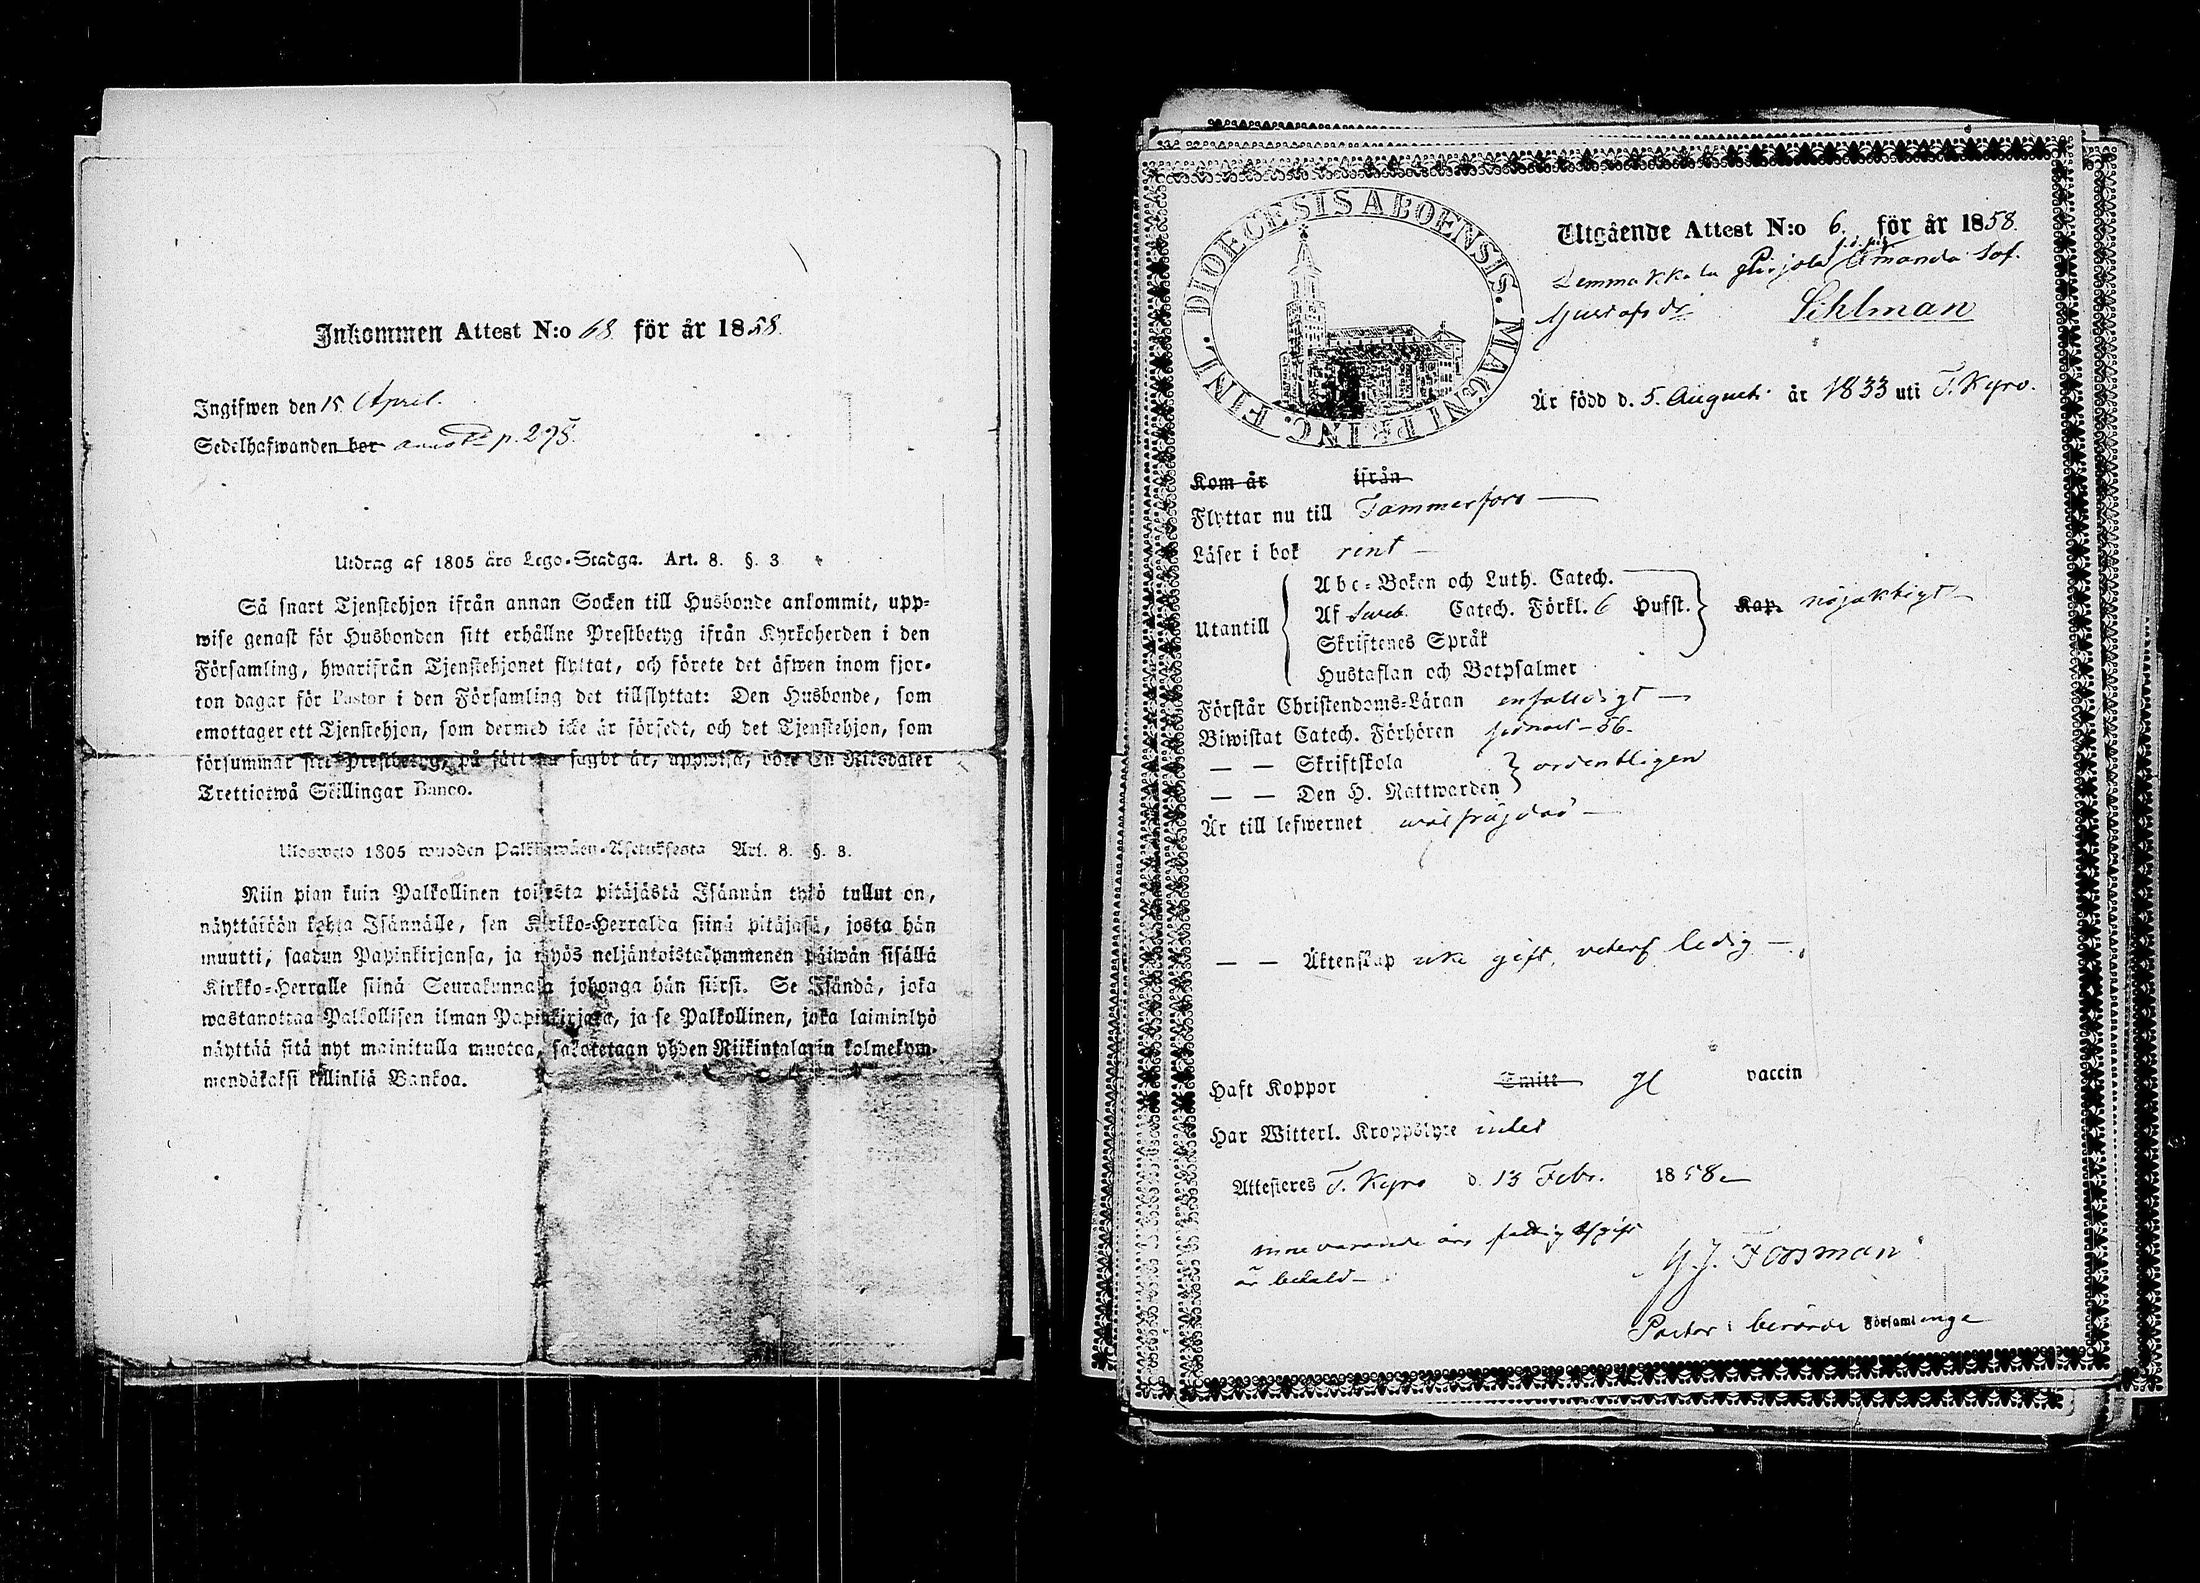 Inkommen Attest N:o 68 för år 1858.
Ingifwen den 15 April.
Sedelhafwanden bor p. 275.
Utdrag af 1805 års Lego-Stadga. Art. 8. §. 3
Så snart Tjenstehjon ifrån annan Socken till Husbonde ankommit, upp-
wise genast för Husbonden sitt erhållne Prestbetyg ifrån Kyrkoherden i den
Församling, hwarifrån Tjenstehjonet flyttat, och förete det äfwen inom fjor-
ton dagar för Pastor i den Församling det tillflyttat: Den Husbonde, som
emottager ett Tjenstehjon, som dermed icke är försedt, och det Tjenstehjon, som
försummar sitt Prestbetyg, på sätt nu sagdt är, uppwisa, böte En Riksdaler
Trettiotwå Skillingar Banco.
Ulosweto 1805 wuoden Palkkawäen-Asetuksesta Art. 8. §. 3.
Niin pian kuin Palkollinen toisesta pitäjästä Isännän tykö tullut on,
näyttäköön kohta Isännälle, sen Kirkko-Herralda siinä pitäjäsä, josta hän
muutti, saadun Papinkirjansa, ja myös neljäntoistakymmenen päiwän sisällä
Kirkko-Herralle siinä Seurakunnasa johonga hän siirsi. Se Isändä, joka
wastanottaa Palkollisen ilman Papinkirjata, ja se Palkollinen, joka laiminlyö
näyttää sitä nyt mainitulla muotoa, sakotetaan yhden Riikintalarin kolmekym-
mendäkaksi killinkiä Bankoa.
DIOECESIS ABOENSIS. MAGNI PRINC. FINL.
Utgående Attest N:o 6. för år 1858.
Lemmakkala Pirjola Amanda Sof.
Gustafsdr Sehlman
Är född d. 5. Augusti år 1833 uti T. Kyro.
Kom år ifrån
Flyttar nu till Tammerfors
Läser i bok rent
Utantill
Abc-Boken och Luth. Catech.
Af Sveb. Catech. Förkl. 6 Hufst. Kap. nöjaktigt
Skriftenes Språk
Hustaflan och Botpsalmer
Förstår Christendoms-Läran enfalldigt
Biwistat Catech. Förhören sednast - 56.
— — Skriftskola
— — Den H. Nattwarden ordentligen
Är till lefwernet wälfrägdad
— — Äktenskap icke gift, ledig
Haft Koppor Smitt vaccin
Har Witterl. Kroppslyte intet
Attesteres T. Kyro d. 13 Febr. 1858
innevarande års fattig afgift
är betald
G. J. Forsman
Pastor i berörde Församlinge